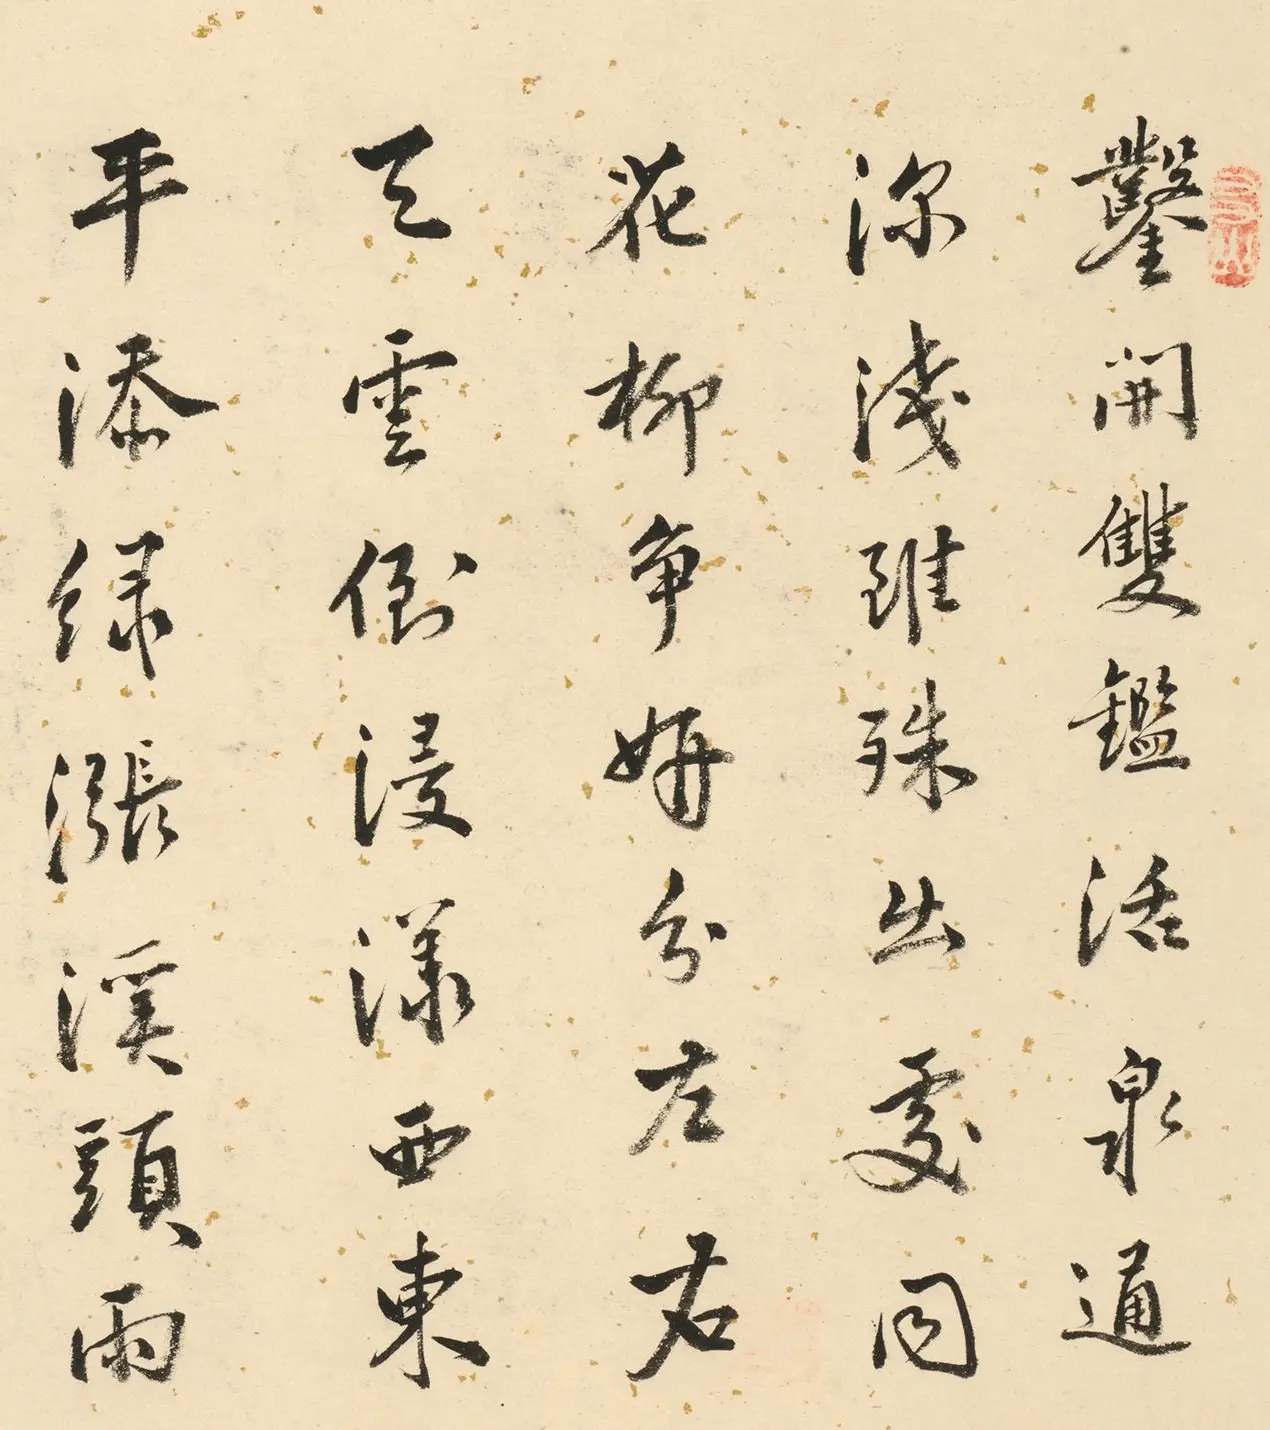 鑿開雙鑑活泉通
深淺雖殊出處同
花柳争妍分左右
天雲倒浸漾西東
平添绿漲溪頭雨